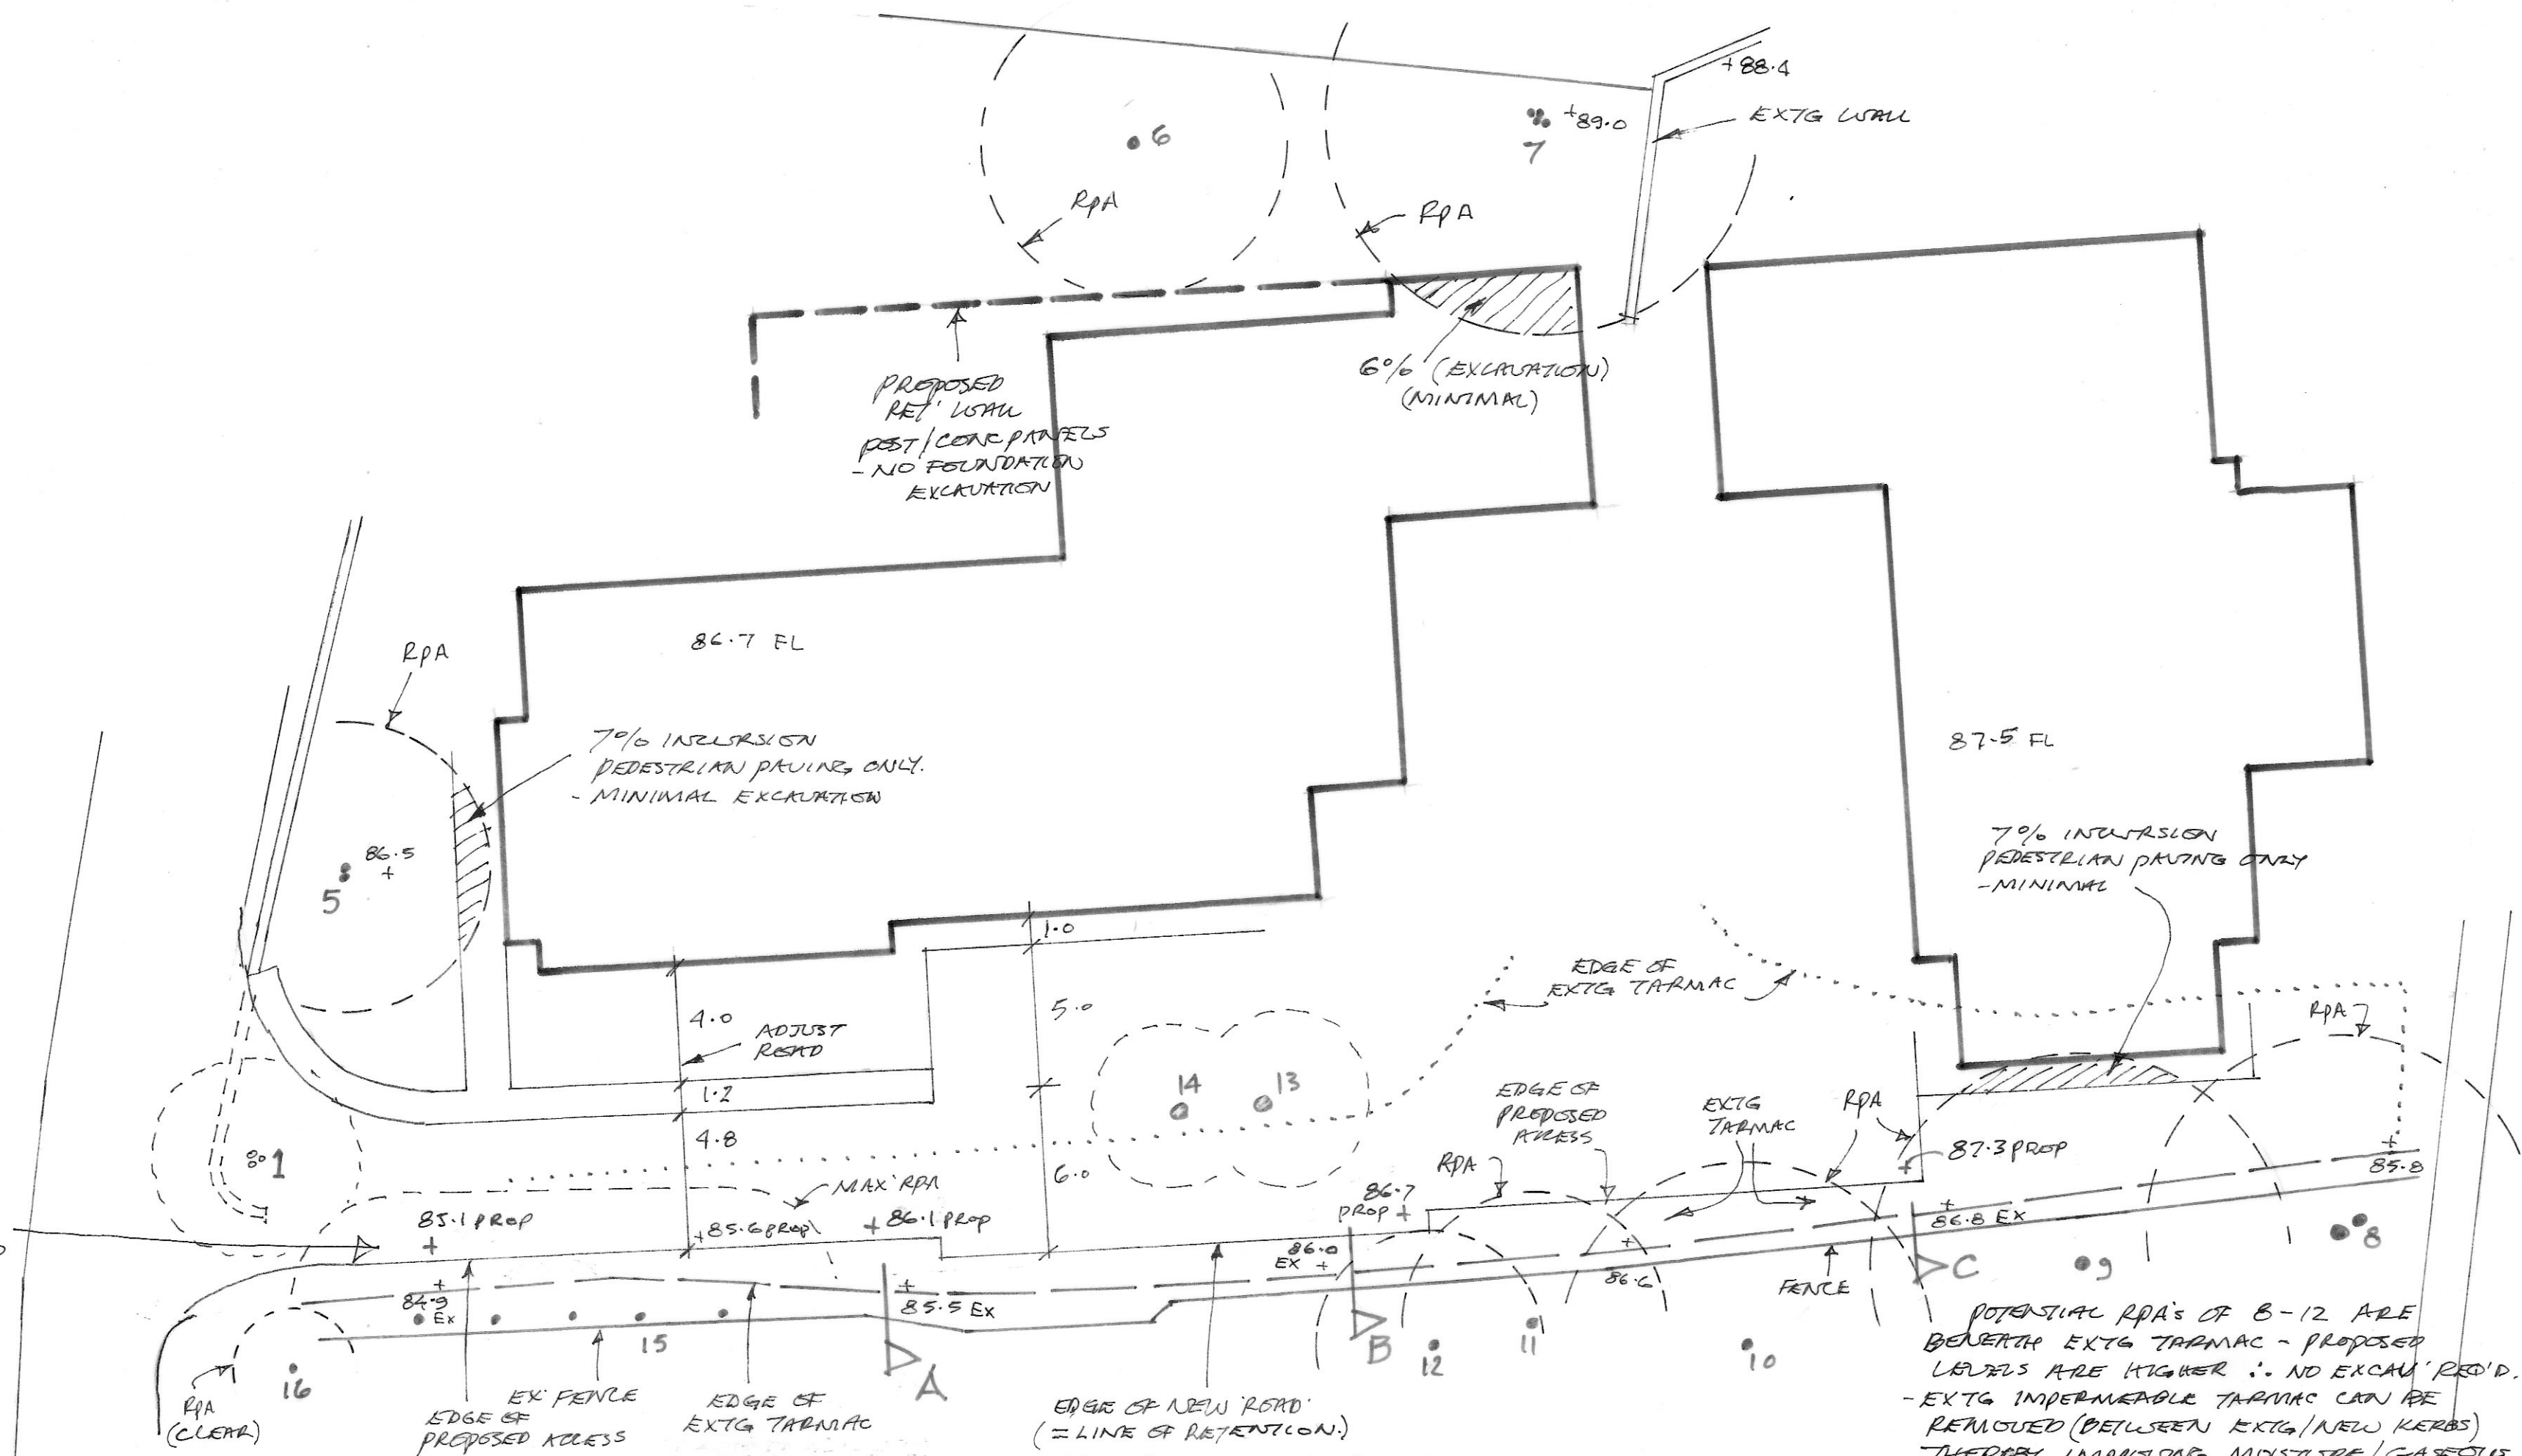 +88.4
EXTG WALL
6
7
+89.0
RPA
RPA
6% (EXCAVATION)
(MINIMAL)
PROPOSED
RET' WALL
POST/CONC PANELS
- NO FOUNDATION
EXCAVATION
86.7 FL
RPA
7% INCURSION
PEDESTRIAN PAVING ONLY.
- MINIMAL EXCAVATION
86.5
+
5
87.5 FL
7% INCURSION
PEDESTRIAN PAVING ONLY
- MINIMAL
1.0
EDGE OF
EXTG TARMAC
5.0
4.0
ADJUST
ROAD
1.2
4.8
6.0
14
13
EDGE OF
PROPOSED
ACCESS
EXTG
TARMAC
RPA
RPA
RPA
+ 87.3 PROP
+
85.8
1
MAX' RPA
85.1 PROP
+
+85.6 PROP
+ 86.1 PROP
86.7
PROP +
86.0
EX +
+
86.6
+
86.8 EX
FENCE
C
9
8
+
84.9
EX
+
85.5 EX
15
A
B
12
11
10
16
RPA
(CLEAR)
EX' FENCE
EDGE OF
PROPOSED ACCESS
EDGE OF
EXTG TARMAC
EDGE OF NEW ROAD
(= LINE OF RETENTION.)
POTENTIAL RPA'S OF 8-12 ARE
BENEATH EXTG TARMAC - PROPOSED
LEVELS ARE HIGHER ∴ NO EXCAV' REQ'D.
- EXTG IMPERMEABLE TARMAC CAN BE
REMOVED (BETWEEN EXTG/NEW KERBS)
THEREBY IMPROVING MOISTURE/GASEOUS